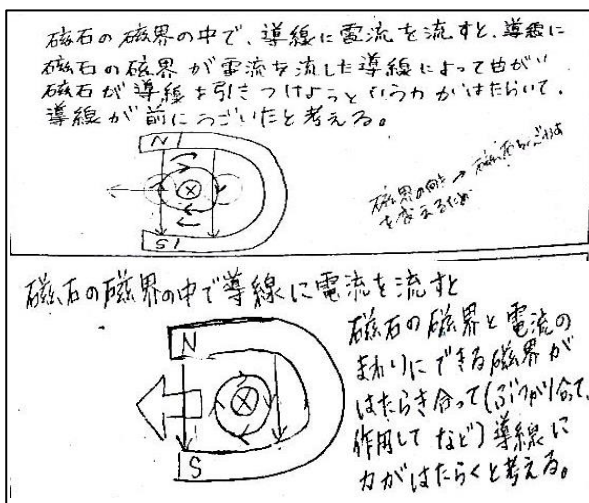 磁石の磁界の中で、導線に電流を流すと、導線に
磁石の磁界が電流を流した導線によって曲がい
磁石が導線を引きつけようという力がはたらいて、
導線が前にうごいたと考える。
N
S
磁界の向き→
を変えるため
磁石の磁界の中で導線に電流を流すと
磁石の磁界と電流の
まわりにできる磁界が
はたらき合って(ぶつかり合って、
作用して など)導線に
力がはたらくと考える。
N
S